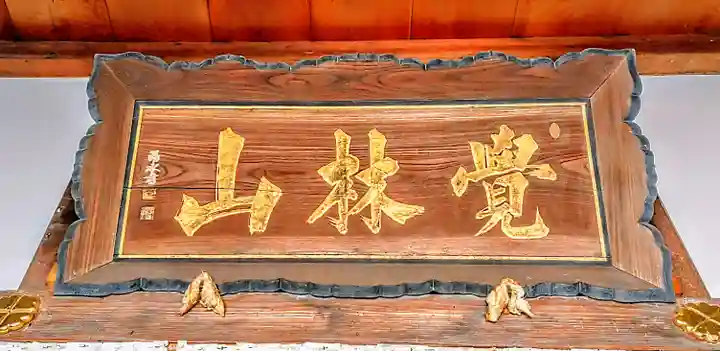 覺林山